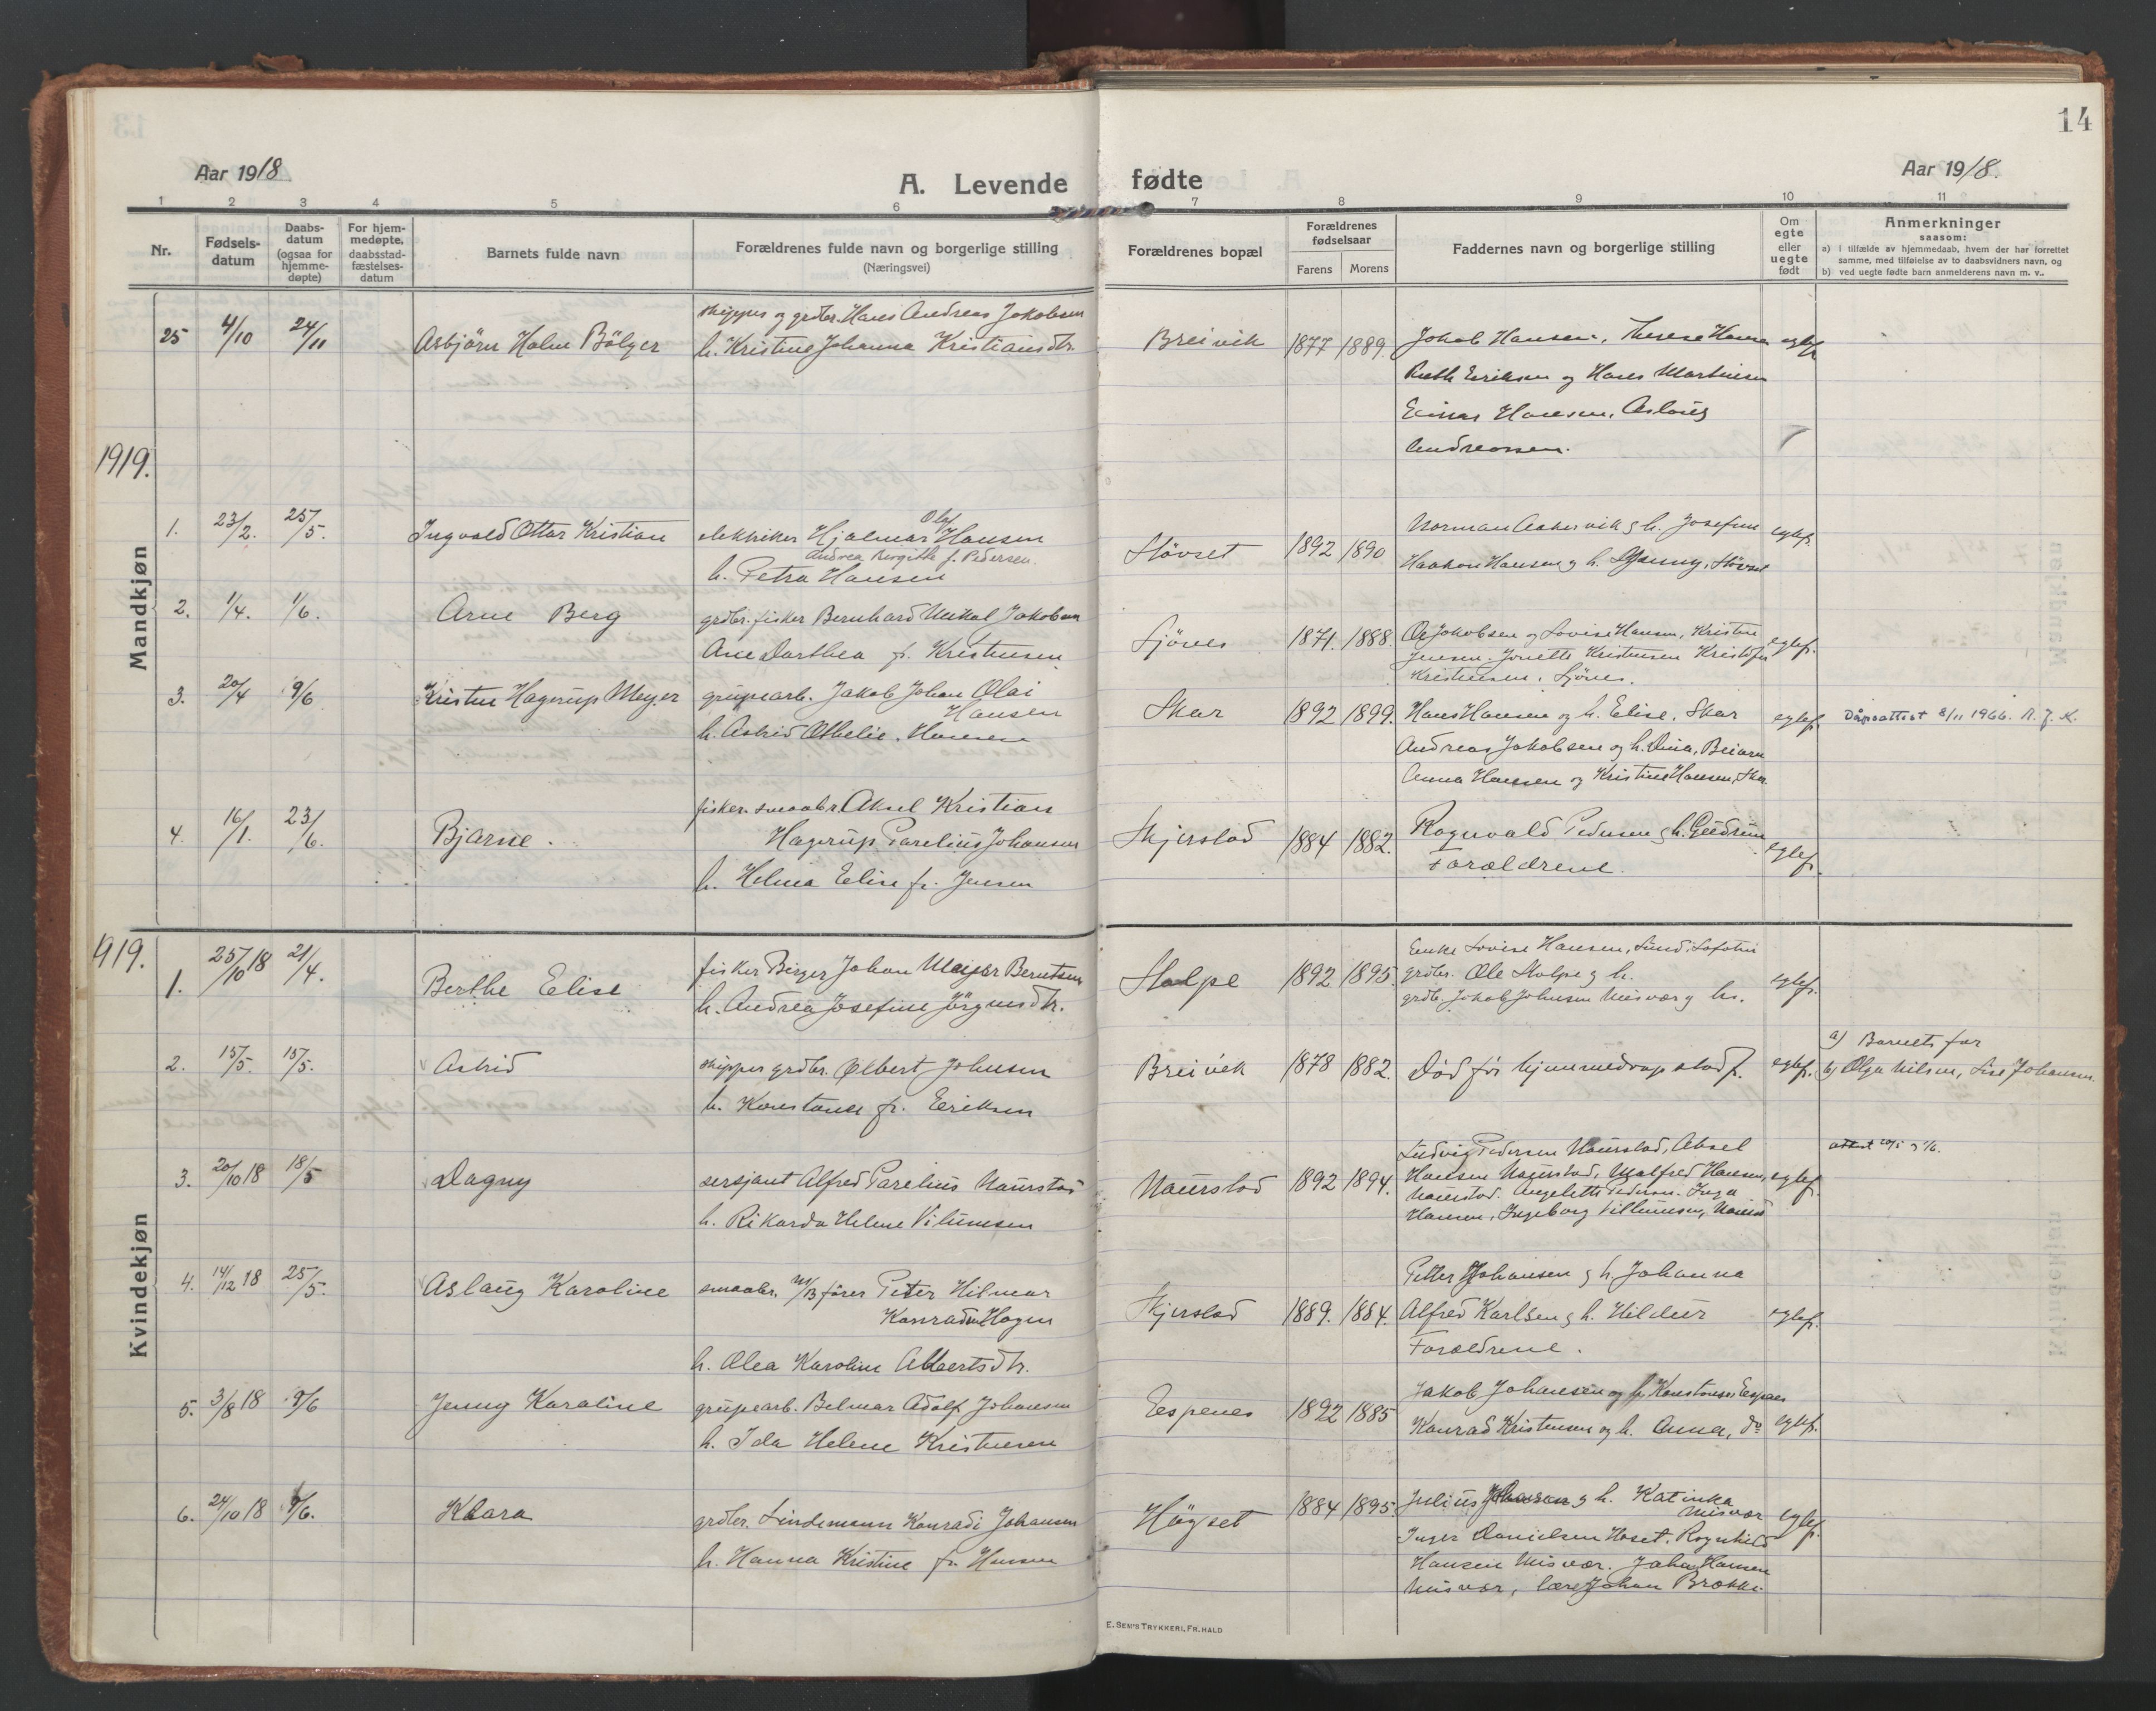 14
Aar 1918
A. Levende fødte
Aar 1918.
1 2 3 4 5 6 7 8 9 10 11
Nr.
Fødsels-
datum
Daabs-
datum
(ogsaa for
hjemme-
døpte)
For hjem-
medøpte,
daabsstad-
fæstelses-
datum
Barnets fulde navn
Forældrenes fulde navn og borgerlige stilling
(Næringsvei)
Forældrenes bopæl
Forældrenes
fødselsaar
Farens Morens
Faddernes navn og borgerlige stilling
Om
egte
eller
uegte
født
Anmerkninger
saasom:
a) i tilfælde av hjemmedaab, hvem der har forrettet
samme, med tilføielse av to daabsvidners navn, og
b) ved uegte fødte barn anmelderens navn m. v.
25 4/10 24/11 Asbjörn Holm Bölger
skipper og grdbr. Hans Andreas Jakobsen
h. Kristine Johanna Kristiansdtr.
Breivik 1877 1889.
Jakob Hansen, Therese Hansen
Ruth Eriksen og Hans Martinsen
Einar Hansen, Aslaug
Andreassen.
egtef.
1919.
Mandkjøn
1. 23/2. 25/5. Ingvald Ottar Kristian
elektriker Hjalmar Olaf Hansen
Andrea Birgitte f. Pedersen.
h. Petra Hansen
Hövset 1892 1890
Norman Aakervik g h. Josefine
Haakon Hansen g h. Hövset
egtef.
2. 1/4. 1/6. Arne Berg
grdbr. fisker Bernhard Mikal Jakobsen
Ane Dorthea f. Kristensen
Sjönes 1871. 1888.
Jakobsen og Lovise Hansen, Kristine
Jensen. Jonette Kristensen Kristofer
Kristensen, Sjönes.
egtef.
3. 20/4 9/6 Kristen Hagerup Meyer
grubearb. Jakob Johan Olai
Hansen
h. Astrid Othelie Hansen
Skar 1892 1899.
Hans Hansen og h. Elise, Skar
Andreas Jakobsen og h. Dina, Beiarn
Anna Hansen og Kristine Hansen, Skar
egtef.
Dåpsattest 8/11 1966. A. J. K.
4. 16/1. 23/6. Bjarne.
fisker. smaabr. Aksel Kristian
Hagerup Parelius Johansen
h. Helma Elise f. Jensen
Skjerstad 1884 1882.
Ragnvald Pedersen g h. Gudrun
Forældrene.
egtef.
1919.
Kvindekjøn
1. 25/10 18 21/4. Berthe Elise
fisker Birger Johan Meyer Berntsen
h. Andrea Josefine Jörgensdtr.
Stolpe 1892 1895.
Enke Lovise Hansen, Sund i Lofoten
grdbr. Ole Stolpe g h.
grdb. Jakob Johnsen Misvær g h.
egtef.
2. 15/5. 15/5. Astrid
skipper grdbr. Albert Johnsen
h. Konstanse f. Eriksen
Breivik 1878 1882.
Död för hjemmedaap stadf.
egtef.
a) Barnets far
b) Olga Nilsen, Lise Johansen.
3. 20/10 18 18/5 Dagny
sersjant Alfred Parelius Naurstad
h. Rikarda Helene Vilumsen
Naurstad 1892 1894.
Ludvig Pedersen Naurstad, Aksel
Hansen Naurstad, Malfred Hansen,
Naurstad. Angelitte Pedersen. Inga
Hansen, Ingeborg Villumsen, Naurstad
egtef.
attest 20/5
4. 14/12 18 25/5. Aslaug Karoline
smaabr. m/b fører Peter Hilmar
Konradsen Hagen
h. Olea Karoline Albertsdtr.
Skjerstad 1889. 1884.
Petter Johansen g h. Johanna
Alfred Karlsen g h. Hildur
Forældrene.
egtef.
5. 3/8 18 9/6 Jenny Karoline
grubearb. Belmar Adolf Johansen
h. Ida Helene Kristensen
Espenes 1892 1885
Jakob Johansen og h. Konstanse Espenes
Konrad Kristensen og h. Anna, do
egtef.
6. 24/10 18 9/6. Klara
grdbr. Lindemann Konradi Johansen
h. Hanna Kristine f. Hansen
Högset 1884 1895.
Julius Johansen g h. Katinka
Misvær
Inger Danielsen Hoset, Ragnhild
Hansen Misvær. Johan Hansen
Misvær, lærer Johan Brække
egtef.
E. SEM'S TRYKKERI, FR.HALD